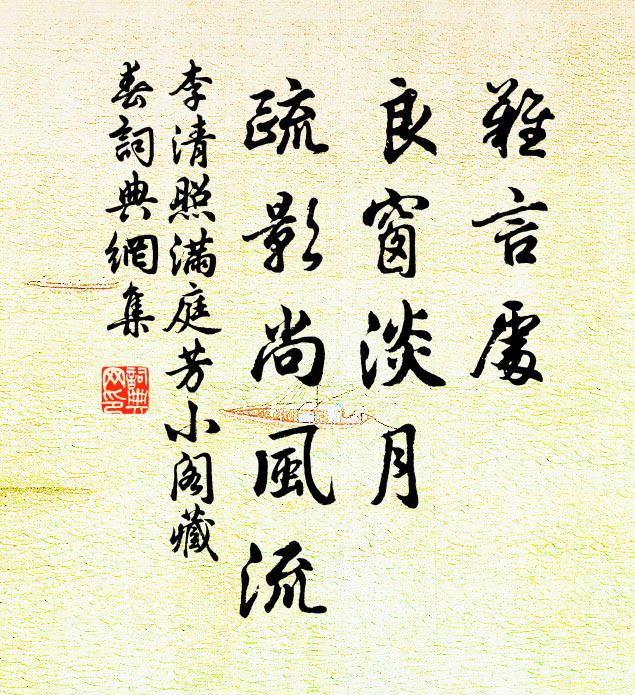 難言處
良窗淡月
疏影尚風流
李清照滿庭芳小閣藏
春詞典網集
詞典网印